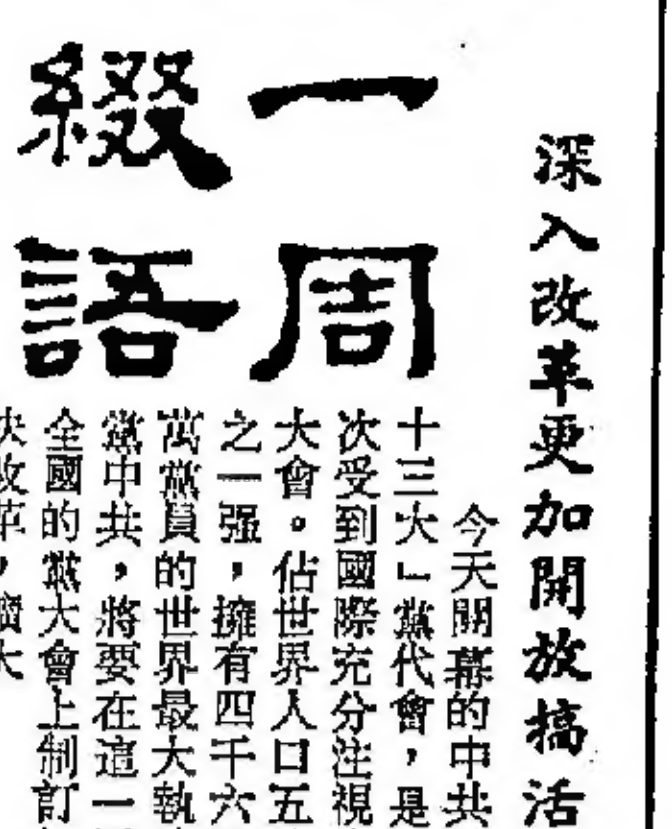 深入改革更加開放搞活
一周
綴語
今天開幕的中共
十三大」黨代會，是
次受到國際充分注視
大會。佔世界人口五
之一强，擁有四千六
萬黨員的世界最大執
黨中共，將要在這一
全國的黨大會上制訂
快改革，擴大